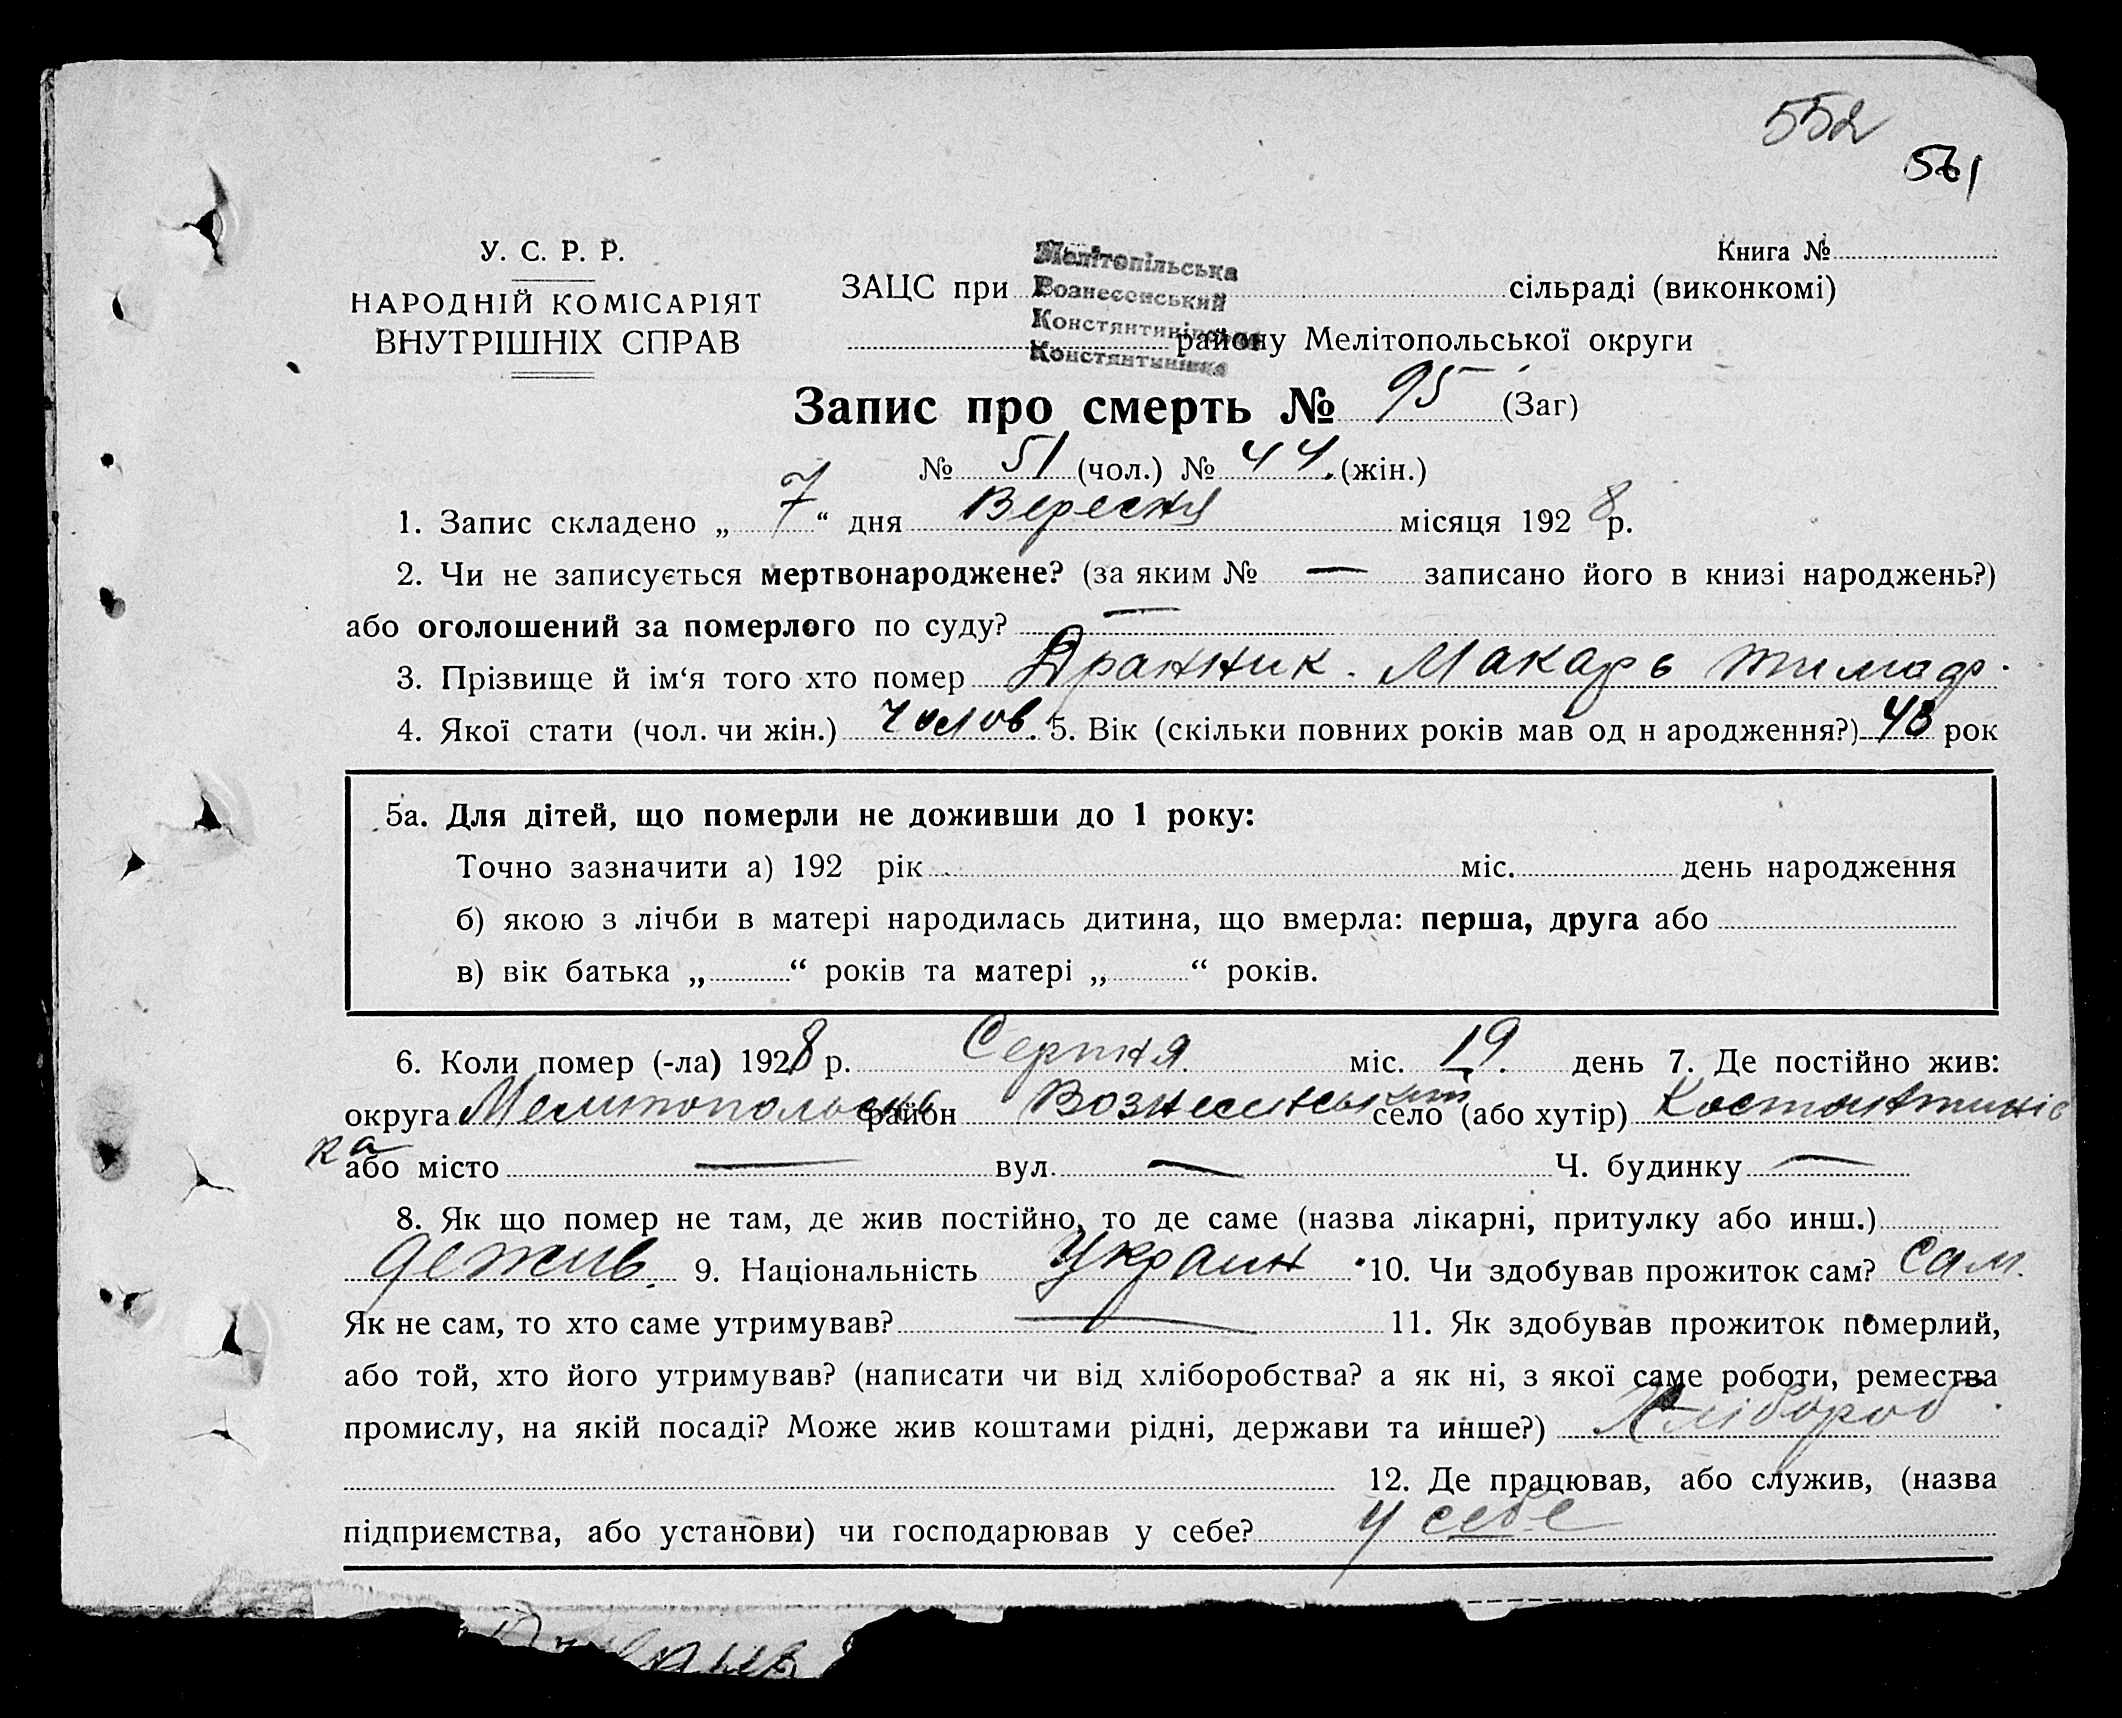 552
561
У. С. Р. Р.
НАРОДНІЙ КОМІСАРІЯТ
ВНУТРІШНІХ СПРАВ
Книга №
ЗАЦС при Мелітопільська Вознесенський Констянтинівська Констянтинівка сільраді (виконкомі)
району Мелітопольської округи
Запис про смерть № 95 (Заг)
№ 51 (чол.) № 44 (жін.)
1. Запис складено „ 7 “ дня Вересня місяця 1928 р.
2. Чи не записується мертвонароджене? (за яким № — записано його в книзі народжень?)
або оголошений за померлого по суду? —
3. Прізвище й ім‘я того хто помер Дранник. Макарь
4. Якої стати (чол. чи жін.) Чолов. 5. Вік (скільки повних років мав од н ародження?) 48 рок
5а. Для дітей, що померли не доживши до 1 року:
Точно зазначити а) 192 рік міс. день народження
б) якою з лічби в матері народилась дитина, що вмерла: перша, друга або
в) вік батька „ “ років та матері „ “ років.
6. Коли помер (-ла) 1928 р. Серпня міс. 19. день 7. Де постійно жив:
округа район село (або хутір) Костянтинів
ка
або місто — вул. — Ч. будинку —
8. Як що помер не там, де жив постійно, то де саме (назва лікарні, притулку або инш.)
де жив. 9. Національність Украин 10. Чи здобував прожиток сам? сам.
Як не сам, то хто саме утримував? — 11. Як здобував прожиток померлий,
або той, хто його утримував? (написати чи від хліборобства? а як ні, з якої саме роботи, ремества
промислу, на якій посаді? Може жив коштами рідні, держави та инше?) Хлібороб
12. Де працював, або служив, (назва
підприємства, або установи) чи господарював у себе? У себе